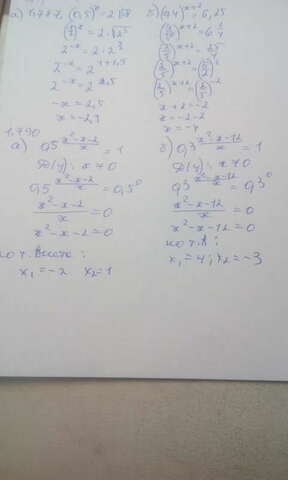 а) 6.787 (0,5)^x = 2√8
(1/2)^x = 2·√2³
2^-x = 2·2^3
2^-x = 2^1+1,5
2^-x = 2^2,5
-x = 2,5
x = -2,5
б) (0,4)^x+2 = 6,25
(4/10)^x+2 = 6 1/4
(2/5)^x+2 = 25/4
(2/5)^x+2 = (5/2)^2
(2/5)^x+2 = (2/5)^-2
x+2 = -2
x = -2-2
x = -4
а) 0,5^(x²-x-2)/x = 1
D(y): x≠0
0,5^(x²-x-2)/x = 0,5^0
(x²-x-2)/x = 0
x²-x-2 = 0
по т. Виета:
x₁ = -2 x₂ = 1
б) 0,3^(x²-x-12)/x = 1
D(y): x≠0
0,3^(x²-x-12)/x = 0,3^0
(x²-x-12)/x = 0
x²-x-12 = 0
по т.В:
x₁ = 4; x₂ = -3